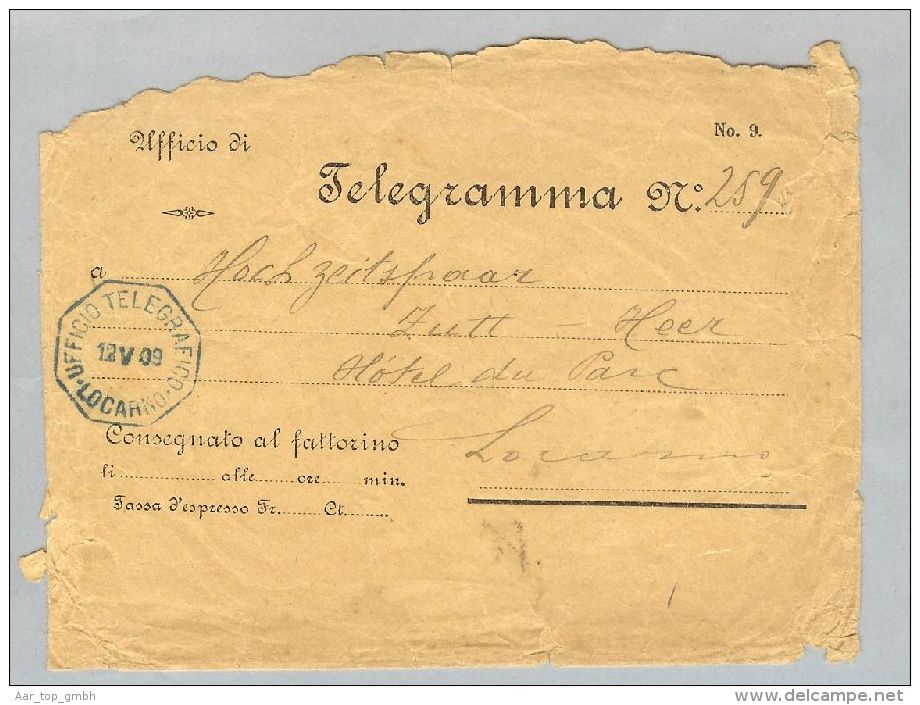 No. 9.
Ufficio di
Telegramma No: 259
a Hochzeitspaar
Zutt - Heer
Hôtel du Parc
Locarno
UFFICIO TELEGRAFICO
12 V 09
LOCARNO
Consegnato al fattorino
li alle ore min.
Tassa d'espresso Fr. Ct.
Aar_top_gmbh
www.delcampe.net